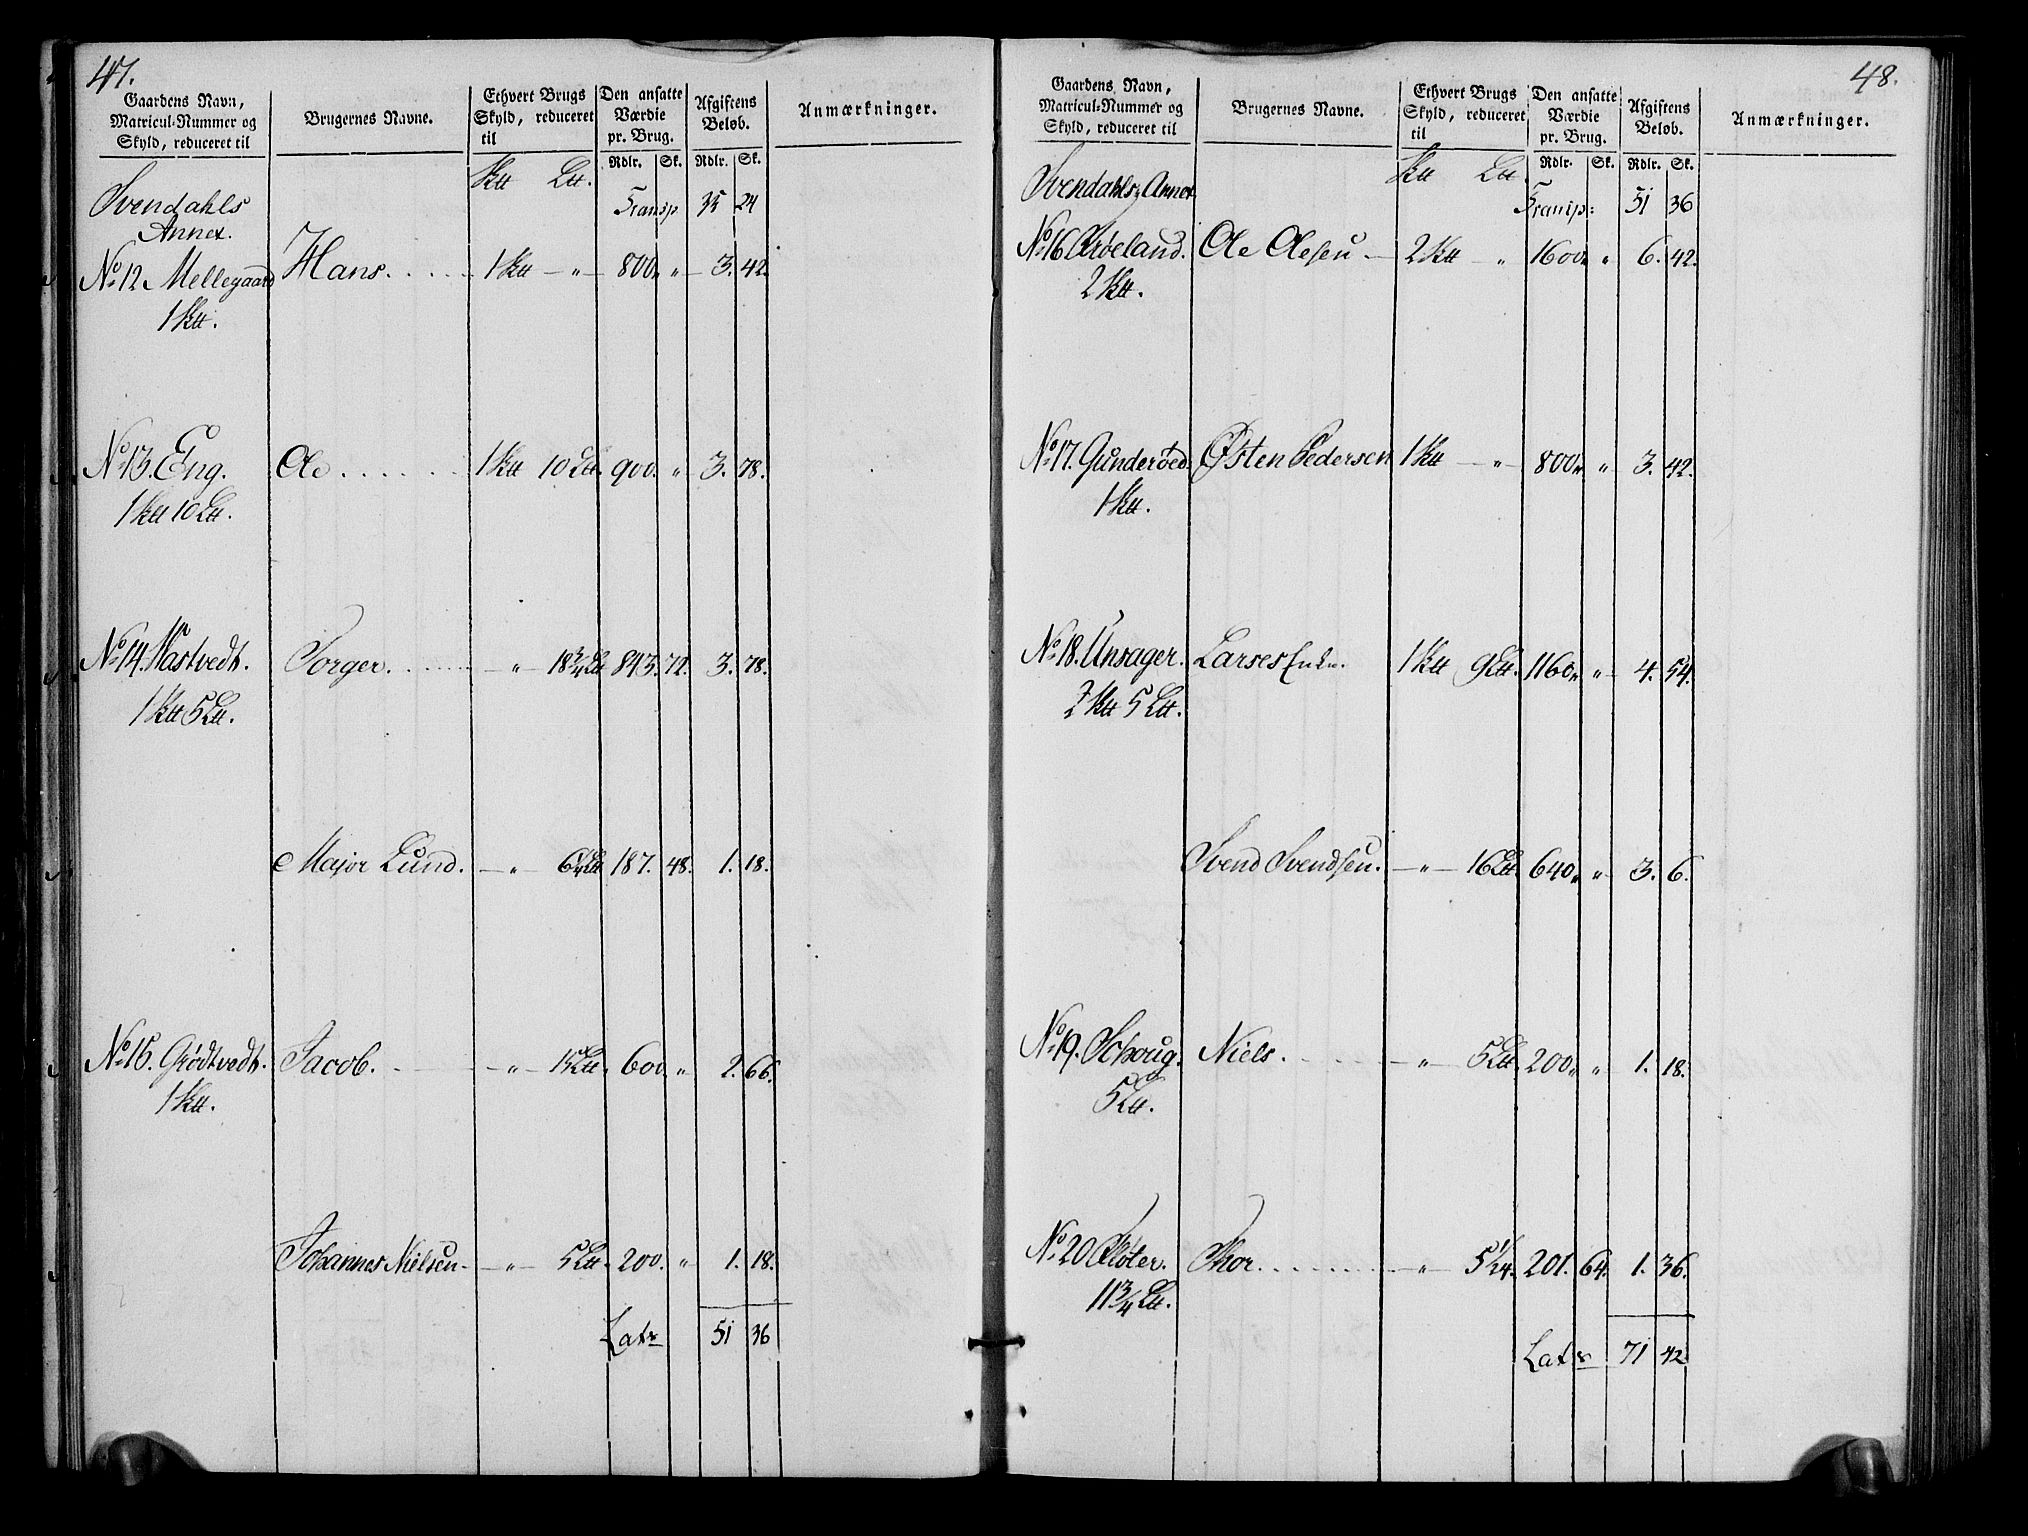 47.
Gaardens Navn, Matricul-Nummer og Skyld, reduceret til
Brugernes Navne.
Ethvert Brugs Skyld, reduceret til
Den ansatte Værdie pr. Brug.
Afgiftens Beløb.
Anmærkninger.
Rdlr. Sk. Rdlr. Sk.
Svendahls Annex.
Transp 35 24
No. 12 Mellegaard Hans. 1 800 " 3. 42.
1
No. 13. Eng. Ole 1 10 900. " 3. 78.
1 10
No. 14. Nastvedt. Torger. " 18 3/4 843. 72. 3. 78.
1 5
Major Lund. " 6 1/4 187. 48. 1. 18.
No. 15. Grødtvedt. Jacob. " 15 600. " 2. 66.
1
Johannes Nielsen " 5 200. " 1. 18.
Lats 51 36
48.
Gaardens Navn, Matricul-Nummer og Skyld, reduceret til
Brugernes Navne.
Ethvert Brugs Skyld, reduceret til
Den ansatte Værdie pr. Brug.
Afgiftens Beløb.
Anmærkninger.
Rdlr. Sk. Rdlr. Sk.
Svendahls Annex
Transp: 51 36
No. 16 Ole Olesen 2 " 1600 " 6. 42.
2
No. 17. Gunderøed Østen Pedersen 1 " 800 " 3. 42.
1
No. 18. Unsager. Larses Enke. 1 9 1160 " 4. 54.
2 5
Svend Svendsen. " 16 640 " 3. 6.
No. 19. Schoug. Niels. " 5 200 " 1. 18.
5
No. 20 Thor. " 5 1/24. 201. 64. 1. 36.
11 3/4
Lats 71 42